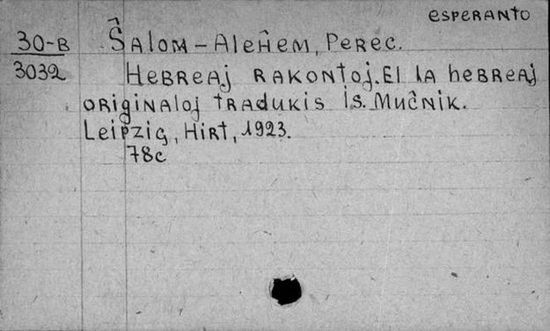 ESPERANTO
30-B
3032
Ŝalom-Aleĥem, Perec.
Hebreaj rakontoj. El la hebreaj
originaloj tradukis Is. Muĉnik.
Leipzig, Hirt, 1923.
78c